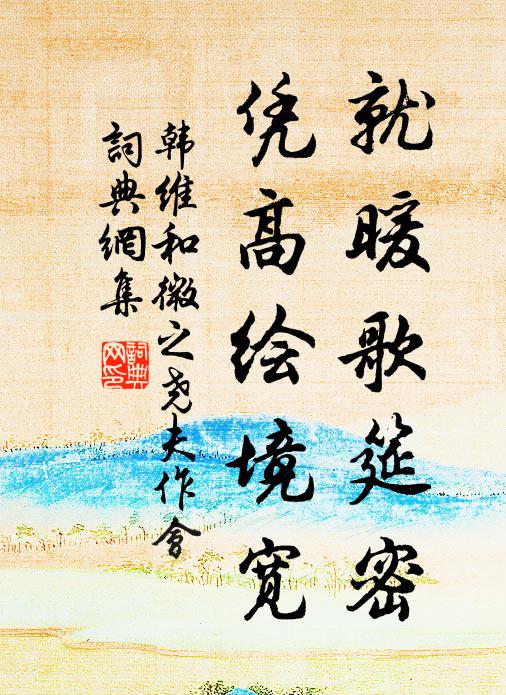 就暖歌筵密
凭高绘境宽
韩维和微之尧夫作会
詞典網集
詞典网印